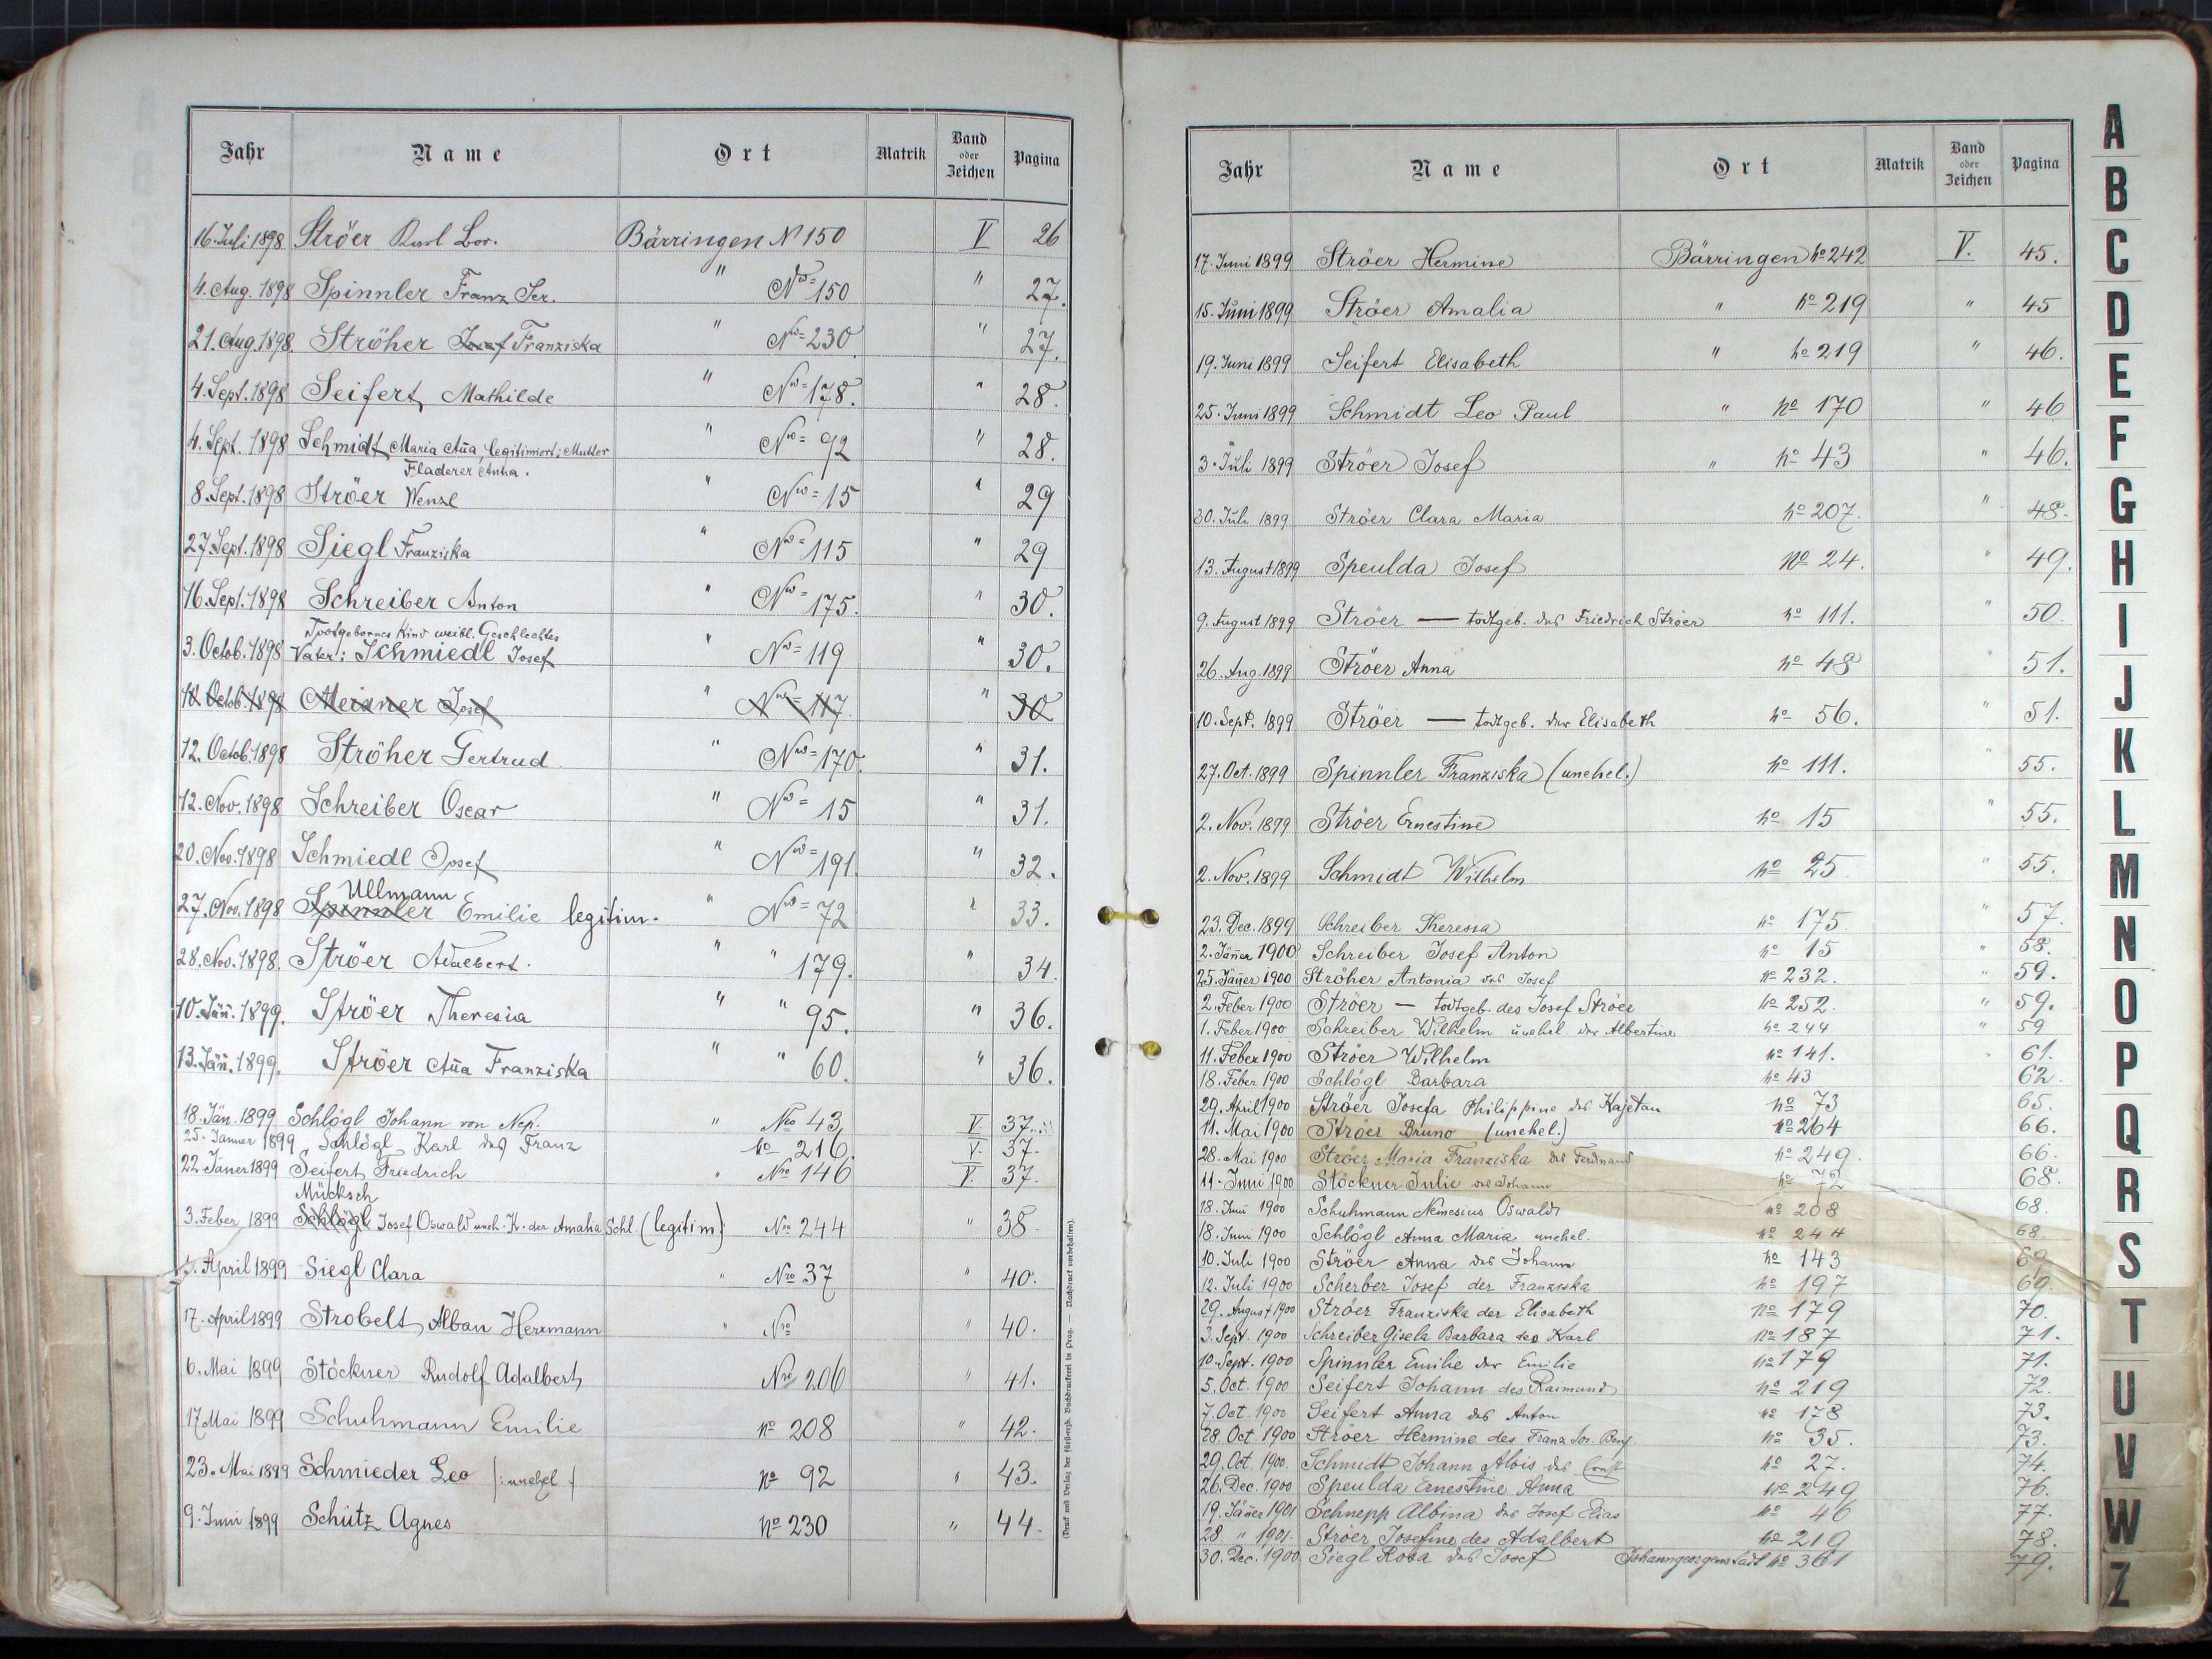 Jahr Name Ort Matrik Band oder Zeichen Pagina
16. Juli 1898 Ströer Karl Bor. Bärringen N 150 V 26
4. Aug. 1898 Spinnler Franz Ser. " Nro= 150 " 27.
21. Aug. 1898. Ströher Josef Franziska " Nro= 230 " 27.
4. Sept. 1898 Seifert Mathilde " Nro= 178. " 28.
4. Sept. 1898 Schmidt Maria Aña, legitimiert; Mutter " Nro= 92 " 28.
Fladerer Anna.
8. Sept. 1898 Ströer Wenzl " Nro= 15 " 29
27. Sept. 1898 Siegl Franziska " Nro= 115 " 29
16. Sept. 1898 Schreiber Anton " Nro= 175. " 30.
Todtgebornes Kind weibl. Geschlechtes
3. Octob. 1898 Vater: Schmiedl Josef " Nro= 119 " 30.
10 Octob. 1898 Meixner Josef " Nro= 117. " 30
12. Octob. 1898 Ströher Gertrud " Nro= 170. " 31.
12. Nov. 1898 Schreiber Oscar " Nro= 15 " 31.
20. Nov. 1898 Schmiedl Josef " Nro= 191 " 32.
Ullmann
27. Nov. 1898 Spinnler Emilie legitim. " Nro= 72 " 33.
28. Nov. 1898. Ströer Adalbert. " " 179. " 34
10. Jän̄. 1899. Ströer Theresia " " 95. " 36.
13. Jän̄. 1899. Ströer Aña Franziska " " 60. " 36.
18. Jän. 1899 Schlögl Johann von Nep. " Nro 43 V. 37.
25. Jänner 1899 Schlögl Karl des Franz No 216. V. 37.
22 Jäner 1899 Seifert Friedrich " Nro 146 V. 37.
Mücksch
3. Feber 1899 Schlögl Josef Oswald uneh. K. der Amalia Schl. (legitim) Nro 244 " 38.
April 1899 Siegl Clara " Nro 37 " 40.
17. April 1899 Strobelt Alban Hermann " Nro " 40.
6. Mai 1899 Stöckner Rudolf Adalbert Nro 206 " 41.
17 Mai 1899 Schuhmann Emilie No 208 " 42.
23. Mai 1899 Schmieder Leo (: unehel :) No 92 " 43.
9. Juni 1899 Schütz Agnes No 230 " 44.
(Druck und Verlag der fürsterzb. Buchdruckerei in Prag. — Nachdruck vorbehalten).
Jahr Name Ort Matrik Band oder Zeichen Pagina
17. Juni 1899 Ströer Hermine Bärringen No 242 V. 45.
15. Juni 1899 Ströer Amalia " No 219 " 45
19. Juni 1899 Seifert Elisabeth " No 219 " 46.
25. Juni 1899 Schmidt Leo Paul " No 170 " 46
3. Juli 1899 Ströer Josef " No 43 " 46.
30. Juli 1899 Ströer Clara Maria No 207. " 48.
13. August 1899 Speulda Josef No 24. " 49.
9. August 1899 Ströer — todtgeb. des Friedrich Ströer No 111. " 50.
26. Aug. 1899 Ströer Anna No 48 " 51.
10. Sept. 1899 Ströer — todtgeb. der Elisabeth No 56. " 51.
27. Oct. 1899 Spinnler Franziska (unehel.) No 111. " 55.
2. Nov. 1899 Ströer Ernestine No 15 " 55.
2. Nov. 1899 Schmidt Wilhelm No 25. " 55.
23. Dec. 1899 Schreiber Theresia No 175. " 57.
2. Jän̄er 1900 Schreiber Josef Anton No 15 " 58.
25. Jän̄er 1900 Ströher Antonia des Josef No 232. " 59.
2. Feber 1900 Ströer — todtgeb. des Josef Ströer No 252. " 59.
1. Feber 1900 Schreiber Wilhelm unehel. der Albertine. No 244 " 59
11. Feber 1900 Ströer Wilhelm No 141. " 61.
18. Feber 1900 Schlögl Barbara No 43 62.
29. April 1900 Ströer Josefa Philippine des Kajetan No 73 65.
11. Mai 1900 Ströer Bruno (unehel.) No 264 66.
28. Mai 1900 Ströer Maria Franziska des Ferdinand No 249. 66.
11. Juni 1900 Stöckner Julie des Johann No 72 68.
18. Juni 1900 Schuhmann Nemesius Oswald No 208 68.
18. Juni 1900 Schlögl Anna Maria unehel. No 244 68.
10. Juli 1900 Ströer Anna des Johann No 143 69.
12. Juli 1900 Scherber Josef der Franziska No 197 69.
29. August 1900 Ströer Franziska der Elisabeth No 179 70.
3. Sept. 1900 Schreiber Gisela Barbara des Karl No 187 71.
10. Sept. 1900 Spinnler Emilie der Emilie No 179 71.
5. Oct. 1900 Seifert Johann des Raimund No 219 72.
7. Oct. 1900 Seifert Anna des Anton No 178 73.
28. Oct. 1900 Ströer Hermine des Franz Jos. No 35. 73.
29. Oct. 1900. Schmidt Johann Alois des Ernst No 27. 74.
26. Dec. 1900 Speulda Ernestine Anna No 249 76.
19. Jän̄er 1901 Schnepp Albina des Josef Elias No 46 77.
28 " 1901. Ströer Josefine des Adalbert No 219 78.
30. Dec. 1900. Siegl Rosa des Josef Johanngeorgenstadt No 361 79.
A
B
C
D
E
F
G
H
I
J
K
L
M
N
O
P
Q
R
S
T
U
V
W
Z